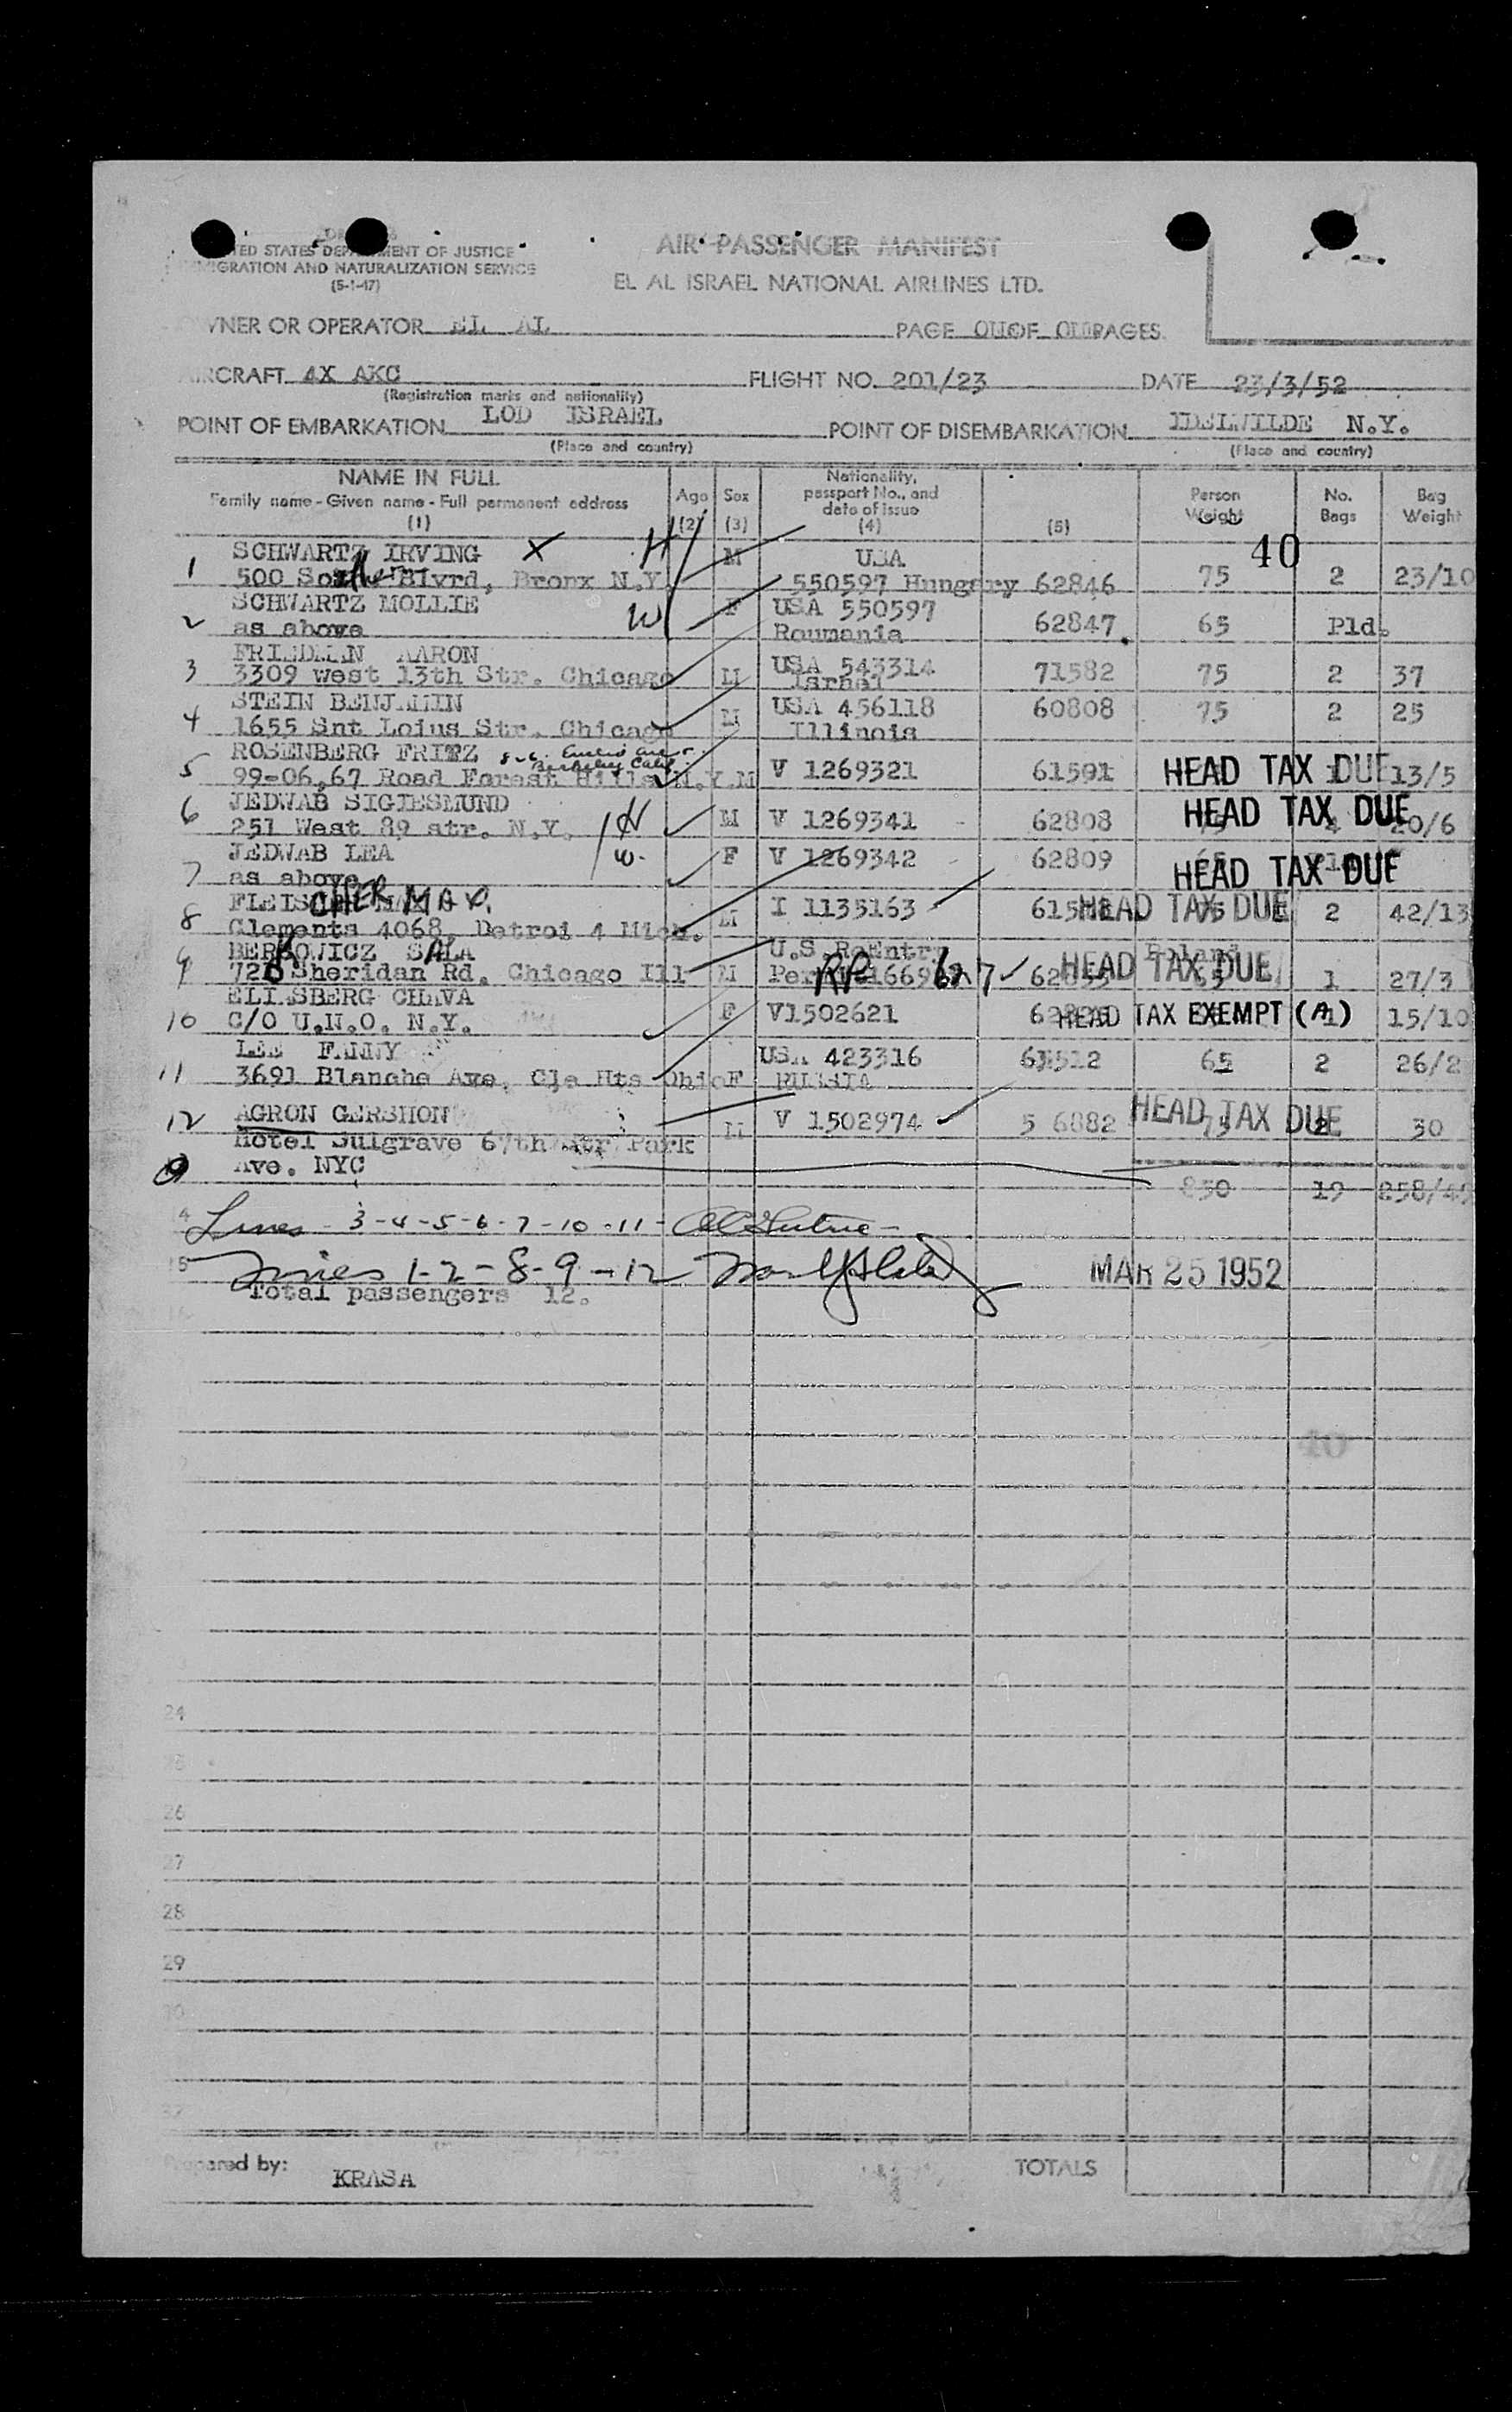 TED STATES DEPARTMENT OF JUSTICE
IGRATION AND NATURALIZATION SERVICE
(5-1-47)
AIR PASSENGER MANIFEST
EL AL ISRAEL NATIONAL AIRLINES LTD.
WNER OR OPERATOR EL AL PAGE OF PAGES
IRCRAFT 4X AKC FLIGHT NO. 201/23 DATE 23/3/52
(Registration marks and nationality)
POINT OF EMBARKATION LOD ISRAEL POINT OF DISEMBARKATION IDELWILDE N.Y.
(Place and country) (Place and country)
NAME IN FULL
Family name - Given name - Full permanent address
(1)
Age (2)
Sex (3)
Nationality, passport No., and date of issue
(4)
(5)
Person Weight
No. Bags
Bag Weight
40
1 SCHWARTZ IRVING X H M USA
500 Southern Blvrd, Bronx N.Y. 550597 Hungary 62846 75 2 23/10
2 SCHWARTZ MOLLIE W F USA 550597
as above Roumania 62847 65 Pld.
3 FRIEDMAN AARON USA 543314
3309 west 13th Str. Chicago M Israel 71582 75 2 37
4 STEIN BENJAMIN USA 456118 60808 75 2 25
1655 Snt Loius Str. Chicago M Illinois
5 ROSENBERG FRITZ Berkeley Calif
99-06,67 Road Forest Hills N.Y. M V 1269321 61591 HEAD TAX DUE 13/5
6 JEDWAB SIGIESMUND H
251 West 89 str. N.Y. M V 1269341 62808 HEAD TAX DUE 20/6
7 JEDWAB LEA W. F V 1269342 62809 HEAD TAX DUE
as above
8 FLEISCHER MAX. M I 1135163 HEAD TAX DUE 2 42/13
Clements 4068, Detroi 4 Mich.
9 BERKOWICZ SALA U.S. ReEntry Poland
Sheridan Rd, Chicago Ill M RP HEAD TAX DUE 1 27/3
10 ELIASBERG CHAVA F V1502621 HEAD TAX EXEMPT (A) 1 15/10
C/O U.N.O. N.Y.
11 LEE FANNY USA 423316 65 2 26/2
3691 Blanche Ave, Cle Hts Ohio F RUSSIA
12 AGRON GERSHON M V 1502974 5 6882 HEAD TAX DUE 75 2 30
Hotel Sulgrave 67th Str Park
Ave. NYC
850 19 258/49
Lines - 3-4-5-6-7-10-11-
Lines 1-2-8-9-12
MAR 25 1952
Total passengers 12.
40
24
25
26
27
28
29
30
32
pared by: KRASA TOTALS